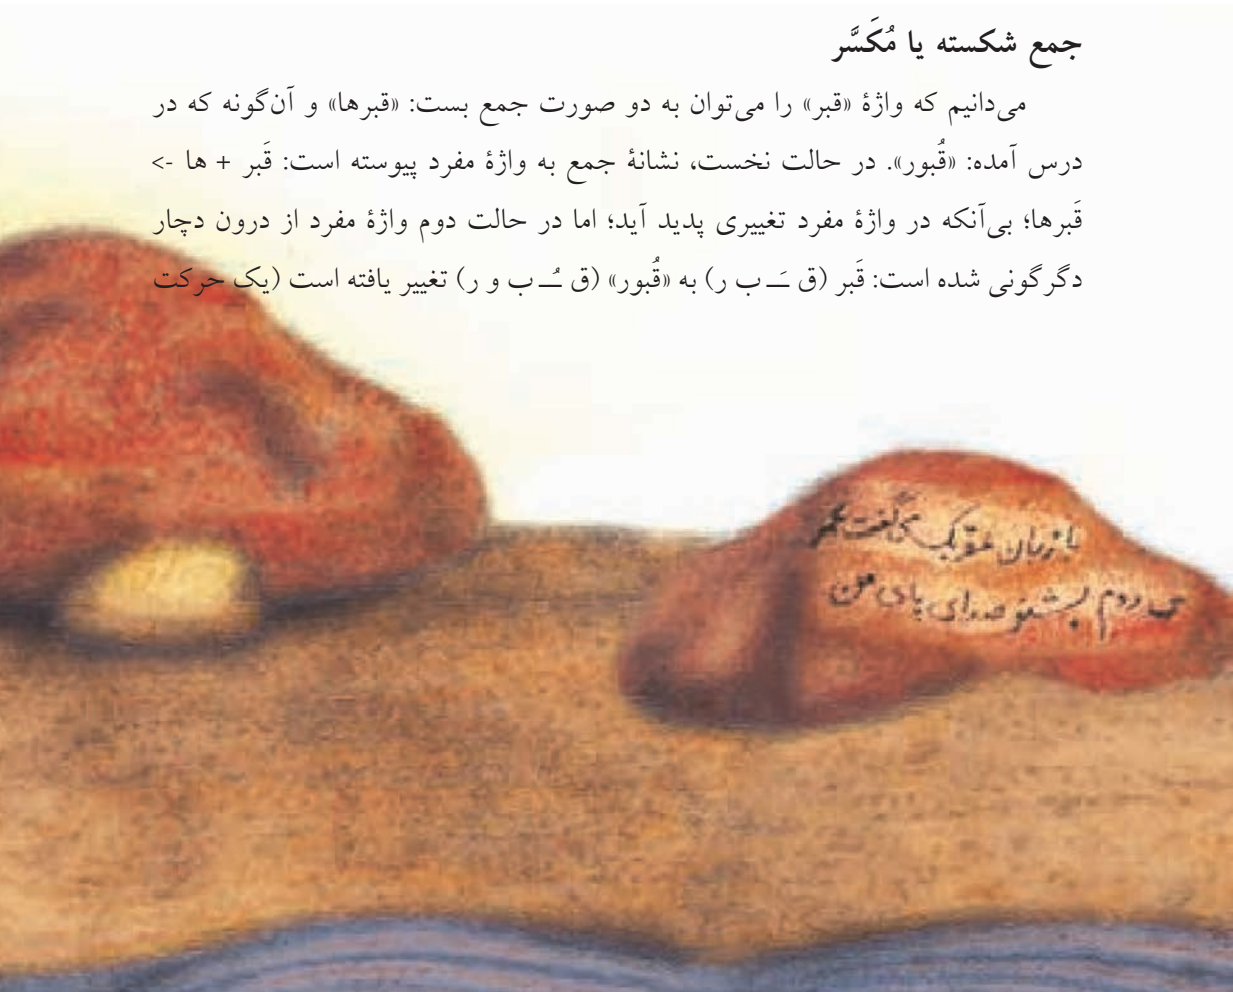 جمع شکسته یا مُکَسَّر
می‌دانیم که واژهٔ «قبر» را می‌توان به دو صورت جمع بست: «قبرها» و آن‌گونه که در
درس آمده: «قُبور». در حالت نخست، نشانهٔ جمع به واژهٔ مفرد پیوسته است: قَبر + ها ->
قَبرها؛ بی‌آنکه در واژهٔ مفرد تغییری پدید آید؛ اما در حالت دوم واژهٔ مفرد از درون دچار
دگرگونی شده است: قَبر (ق ـَـ ب ر) به «قُبور» (ق ـُـ ب و ر) تغییر یافته است (یک حرکت
با زبان عقربک می‌گفت عمر
می‌روم بشنو صدای پای من